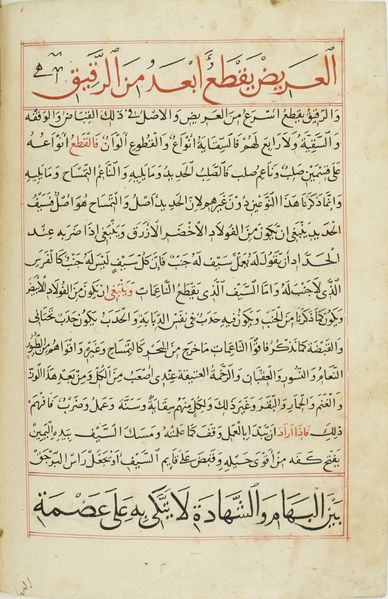 العريض يقطع أبعد من الرقيق
والرقيق يقطع اسرع من العريض والاصل في ذلك القبضات والوقفة
والسقية ولا رابع لهم فالسقاية انواع والقطوع ألوان فالقطع انواعه
على قسمين صلب وناعم صلب فالصلب الحديد وما يليه والناعم التمساح وما يليه
وانما ذكرنا هذا النوعين دون غيرهم لان الحديد اصل والتمساح هو اصل فسيف
الحديد ينبغي ان يكون من الفولاد الأخضر الأزرق وينبغي اذا ضربه عند
الحداد أن يقول له يعمل سيف له جنب فان كل سيف ليس له جنب كالفرس
الذي لا جنب له واما السيف الذي يقطع الناعمات وينبغي ان يكون من الفولاد الأبيض
ويكون كما ذكرنا من الجنب ويكون فيه حدب في نفس الدبابة والحدب يكون حدب تحتاني
والقبضة كما نذكر فاقوا الناعمات ما خرج من البحر كالتمساح وغيره واقواهم من الطيور
النعام والنسور والعقبان والرخمة العتيقة عندي اصعب من الكل ومن بعد هذا
والغنم والحمار والبقر وغير ذلك ولكل منهم سقاية وسنة وعمل وضرب فافهم
ذلك فاذا اراد ان يبتدا بالعمل وقف كما علمته ومسك السيف بيده اليمين
يفتح كفه من اقوى حيله وقبض على قايم السيف أو يجعل راس البرجق
بين البهام والشهادة لا يتكي به على عصمة